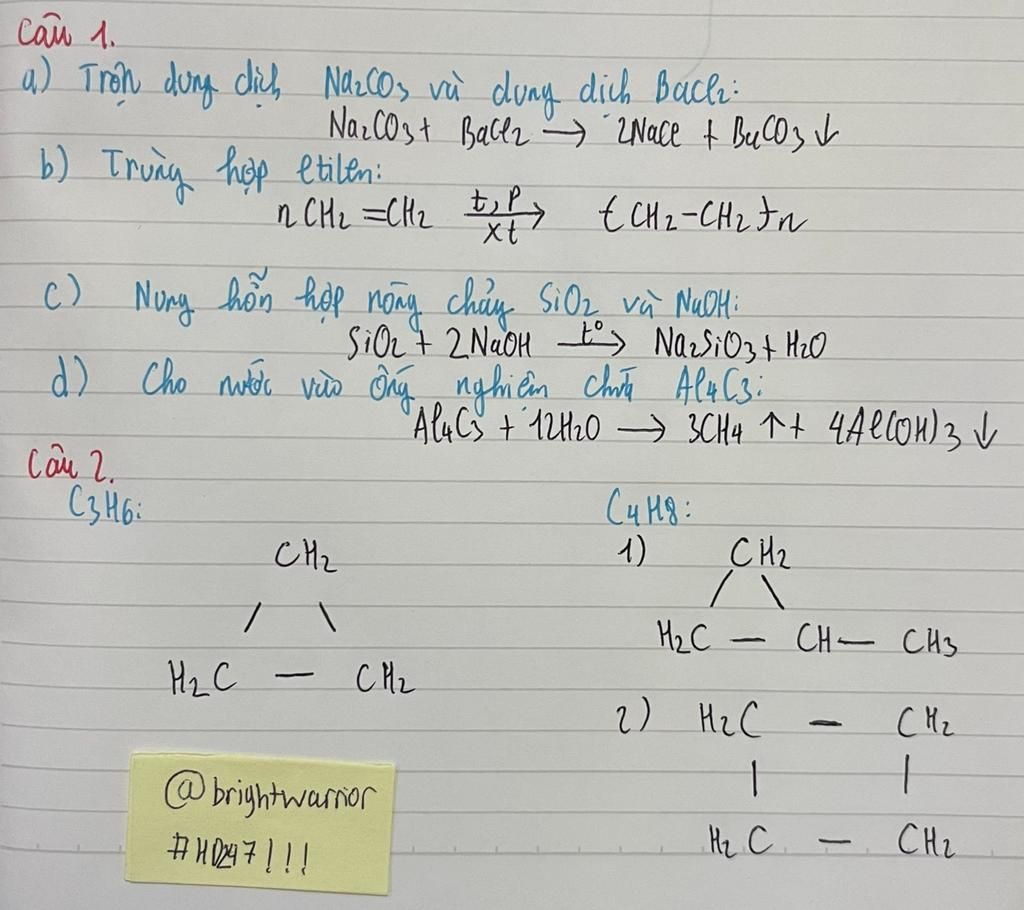 Câu 1.
a) Trộn dung dịch Na2CO3 và dung dịch BaCl2:
Na2CO3 + BaCl2 → 2NaCl + BaCO3 ↓
b) Trùng hợp etilen:
n CH2 = CH2 t, P / xt → ( CH2 - CH2 ) n
c) Nung hỗn hợp nóng chảy SiO2 và NaOH:
SiO2 + 2NaOH t° → Na2SiO3 + H2O
d) Cho nước vào ống nghiệm chứa Al4C3:
Al4C3 + 12H2O → 3CH4 ↑ + 4Al(OH)3 ↓
Câu 2.
C3H6:
CH2
/ \
H2C — CH2
C4H8:
1) CH2
/ \
H2C — CH — CH3
2) H2C — CH2
| |
H2C — CH2
@brightwarrior
#HD247!!!